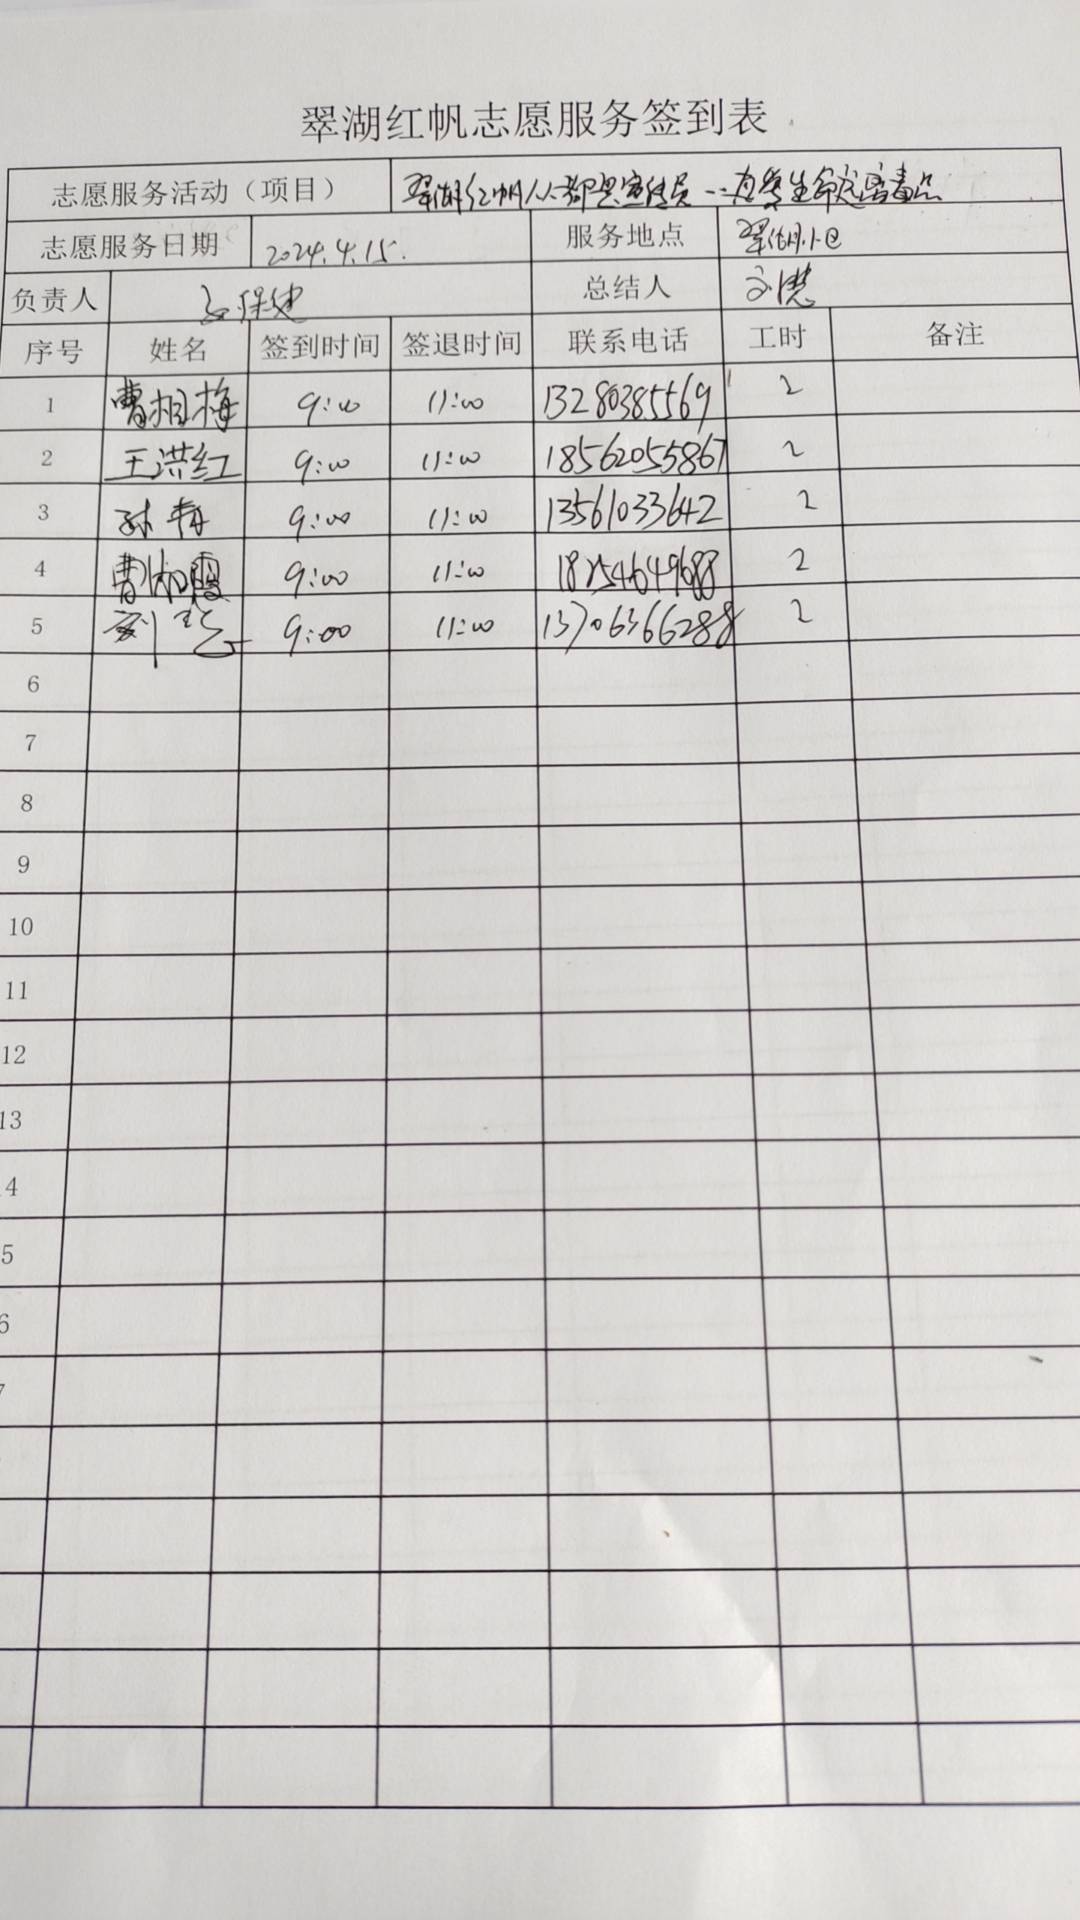 翠湖红帆志愿服务签到表
志愿服务活动（项目） 翠湖红帆人人都是宣传员--珍爱生命远离毒品
志愿服务日期 2024.4.15. 服务地点 翠湖小区
负责人 总结人
序号 姓名 签到时间 签退时间 联系电话 工时 备注
1 曹相梅 9:00 11:00 13280385569 2
2 王洪红 9:00 11:00 18562055867 2
3 孙青 9:00 11:00 13561033642 2
4 曹 霞 9:00 11:00 18254649688 2
5 刘艺 9:00 11:00 13706366288 2
6
7
8
9
10
11
12
13
4
5
6
7